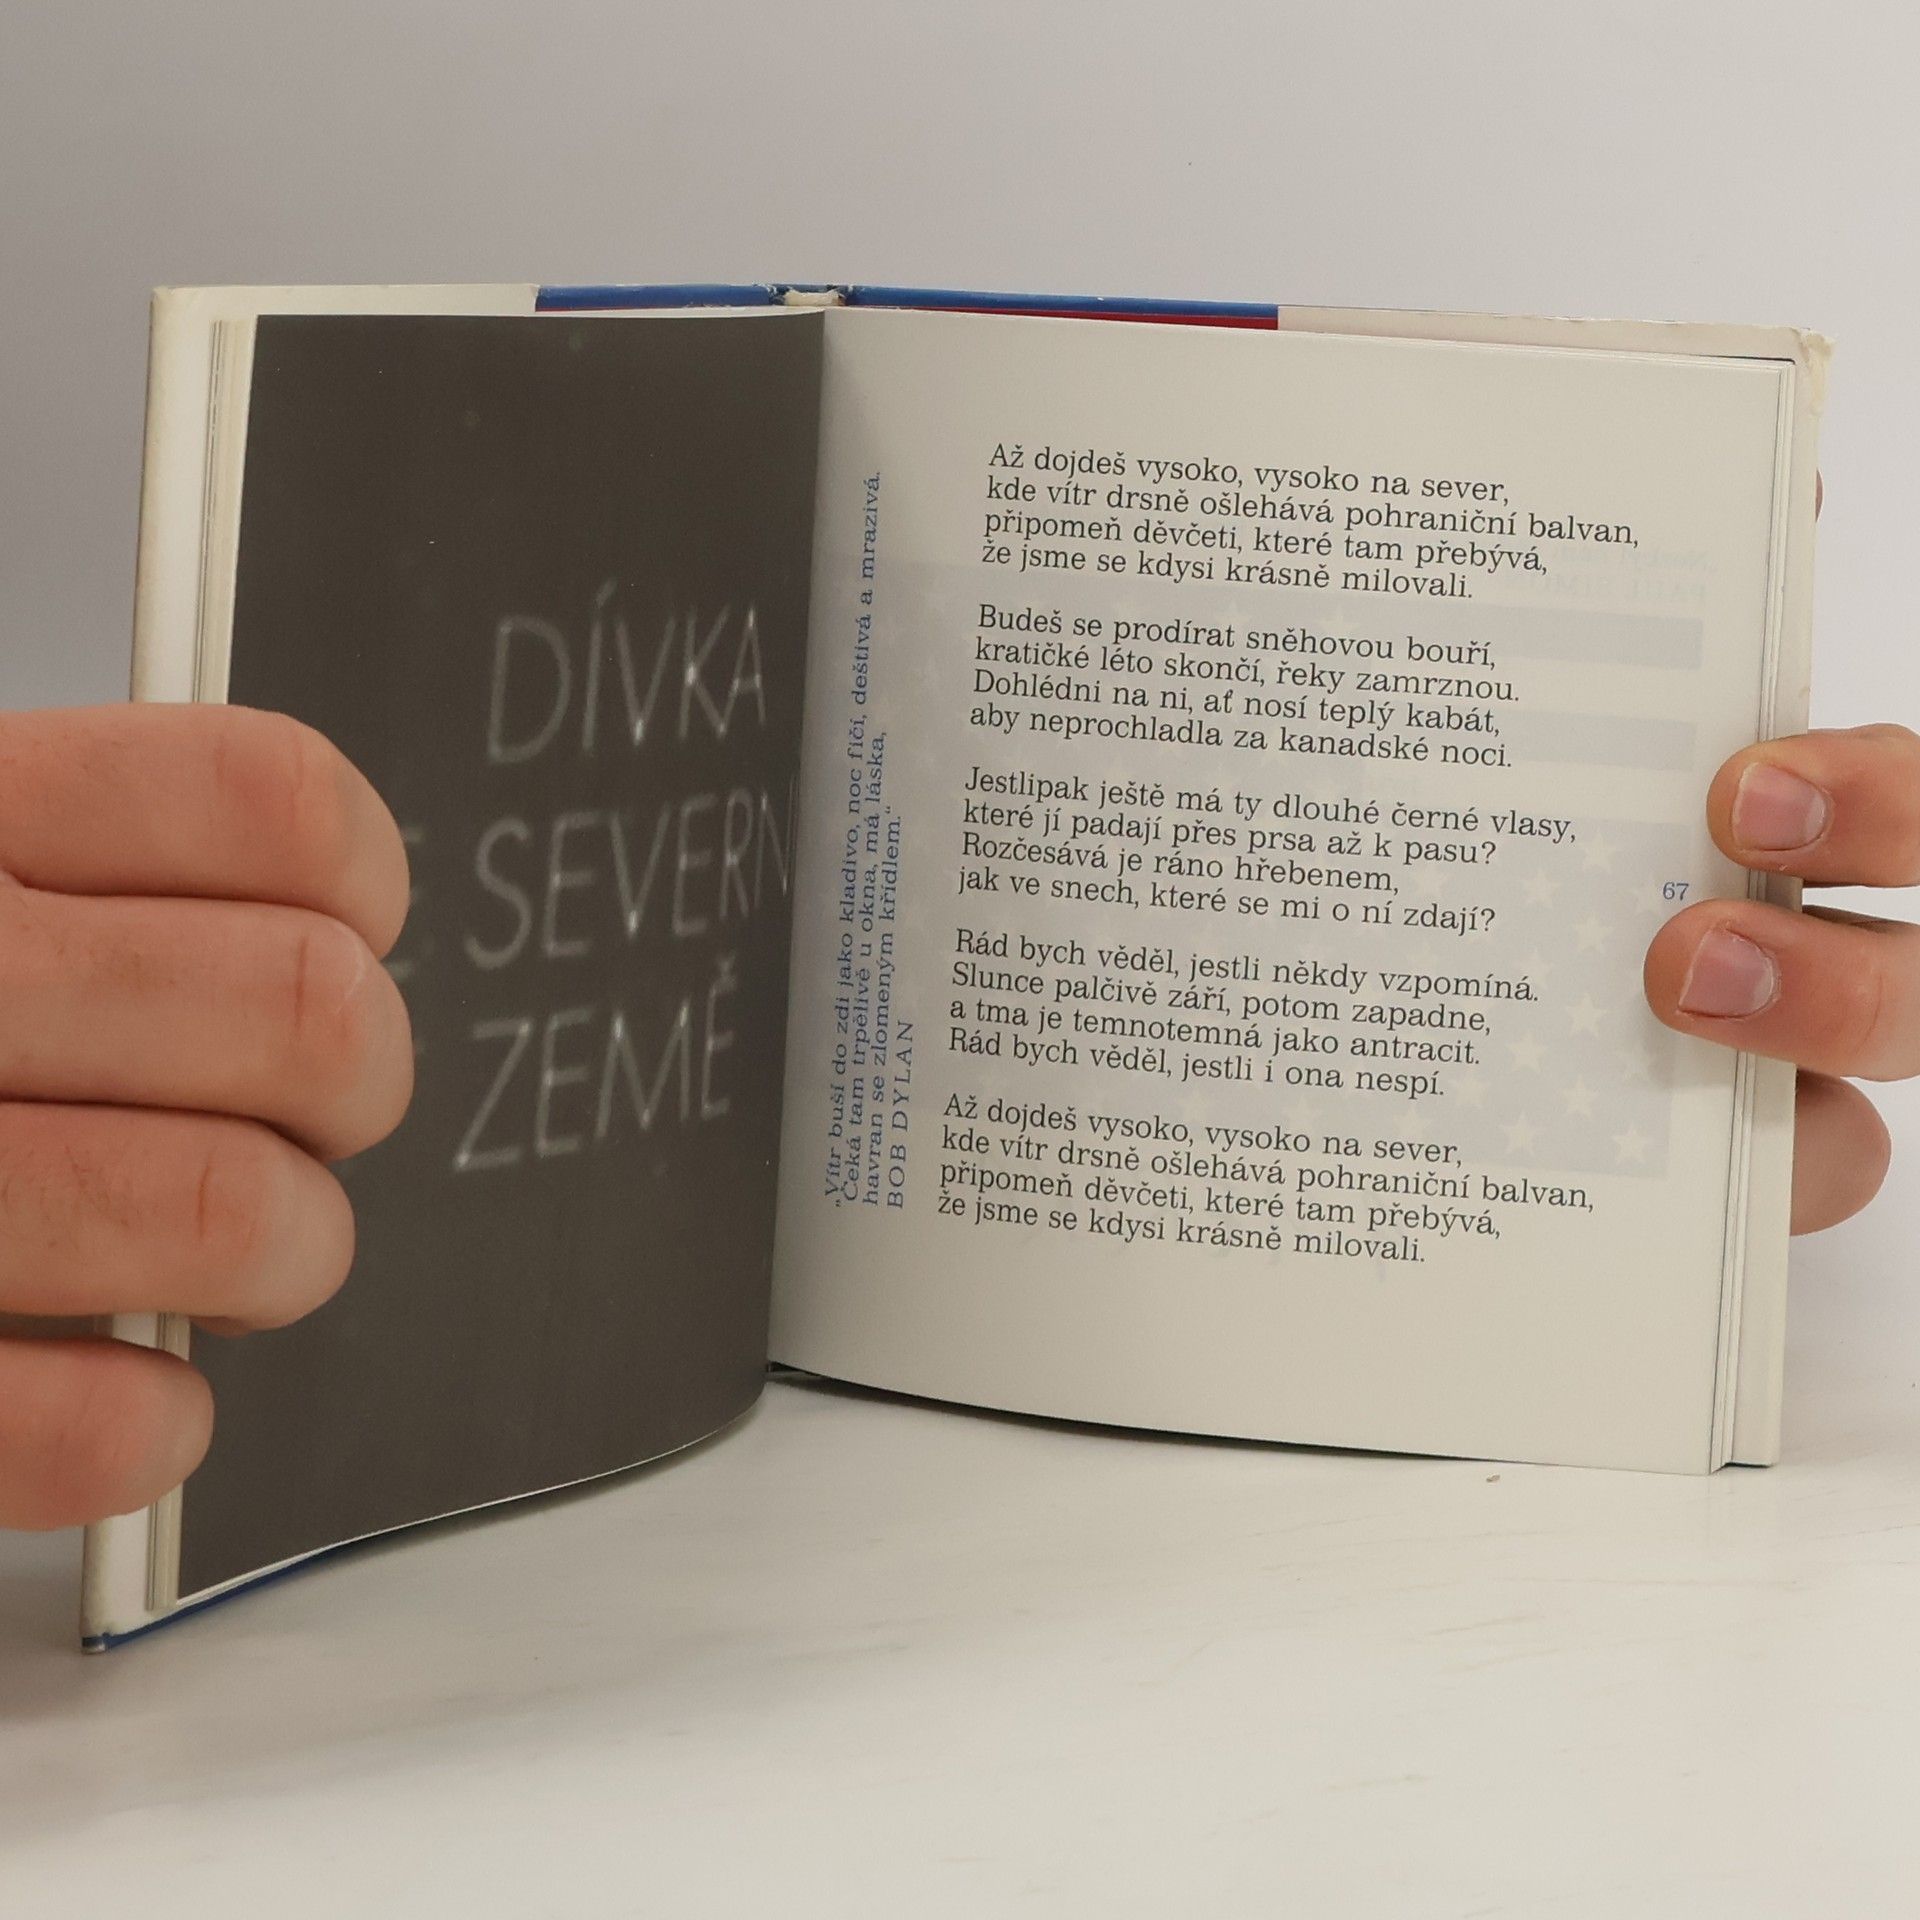 DÍVKA
SEVERN
ZEMĚ
„Vítr buší do zdi jako kladivo, noc fičí, deštivá a mrazivá.
Čeká tam trpělivě u okna, má láska,
havran se zlomeným křídlem.“
BOB DYLAN
Až dojdeš vysoko, vysoko na sever,
kde vítr drsně ošlehává pohraniční balvan,
připomeň děvčeti, které tam přebývá,
že jsme se kdysi krásně milovali.
Budeš se prodírat sněhovou bouří,
kratičké léto skončí, řeky zamrznou.
Dohlédni na ni, ať nosí teplý kabát,
aby neprochladla za kanadské noci.
Jestlipak ještě má ty dlouhé černé vlasy,
které jí padají přes prsa až k pasu?
Rozčesává je ráno hřebenem,
jak ve snech, které se mi o ní zdají?
67
Rád bych věděl, jestli někdy vzpomíná.
Slunce palčivě září, potom zapadne,
a tma je temnotemná jako antracit.
Rád bych věděl, jestli i ona nespí.
Až dojdeš vysoko, vysoko na sever,
kde vítr drsně ošlehává pohraniční balvan,
připomeň děvčeti, které tam přebývá,
že jsme se kdysi krásně milovali.